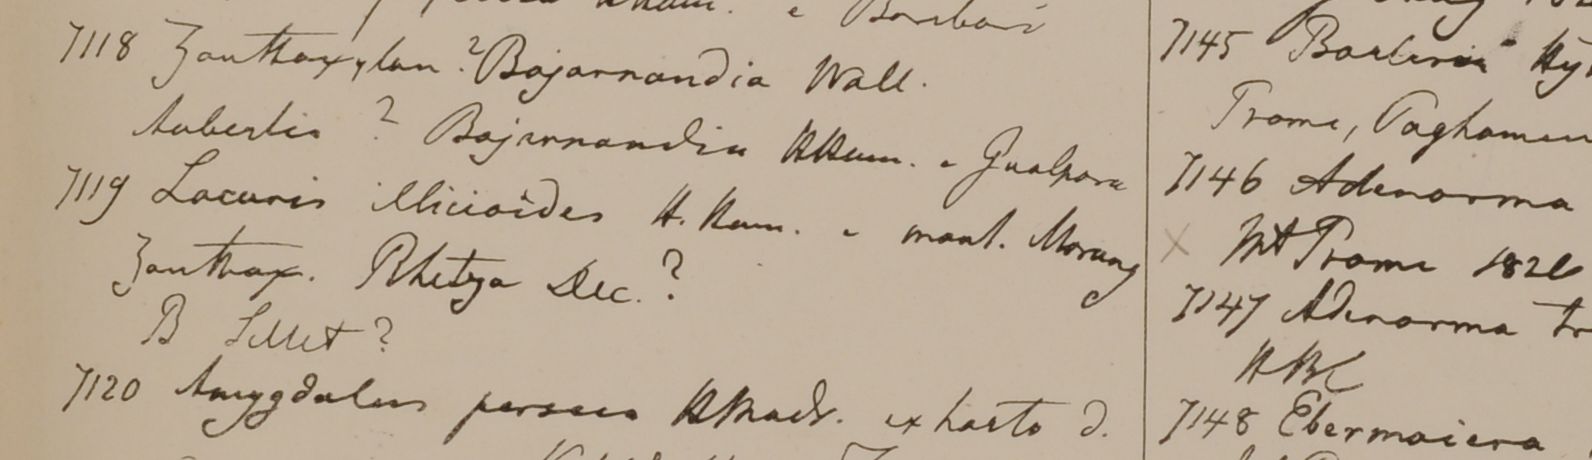 HHam. e
7118 Zanthoxylon ? Bojarnandia Wall.
Aubertia ? Bojarnandia HHam. e Gualpara
7119 Lacuris illicioides H. Ham. e mont. Morung
Zanthox. Rhetza Dec. ?
B Sillet ?
7120 Amygdalus persica HMadr. ex horto d.
7145 Barleria Hy
Prome,
7146 Adenosma
× Mt Prome 1826
7147 Adenosma tr
HBC
7148 Ebermaiera